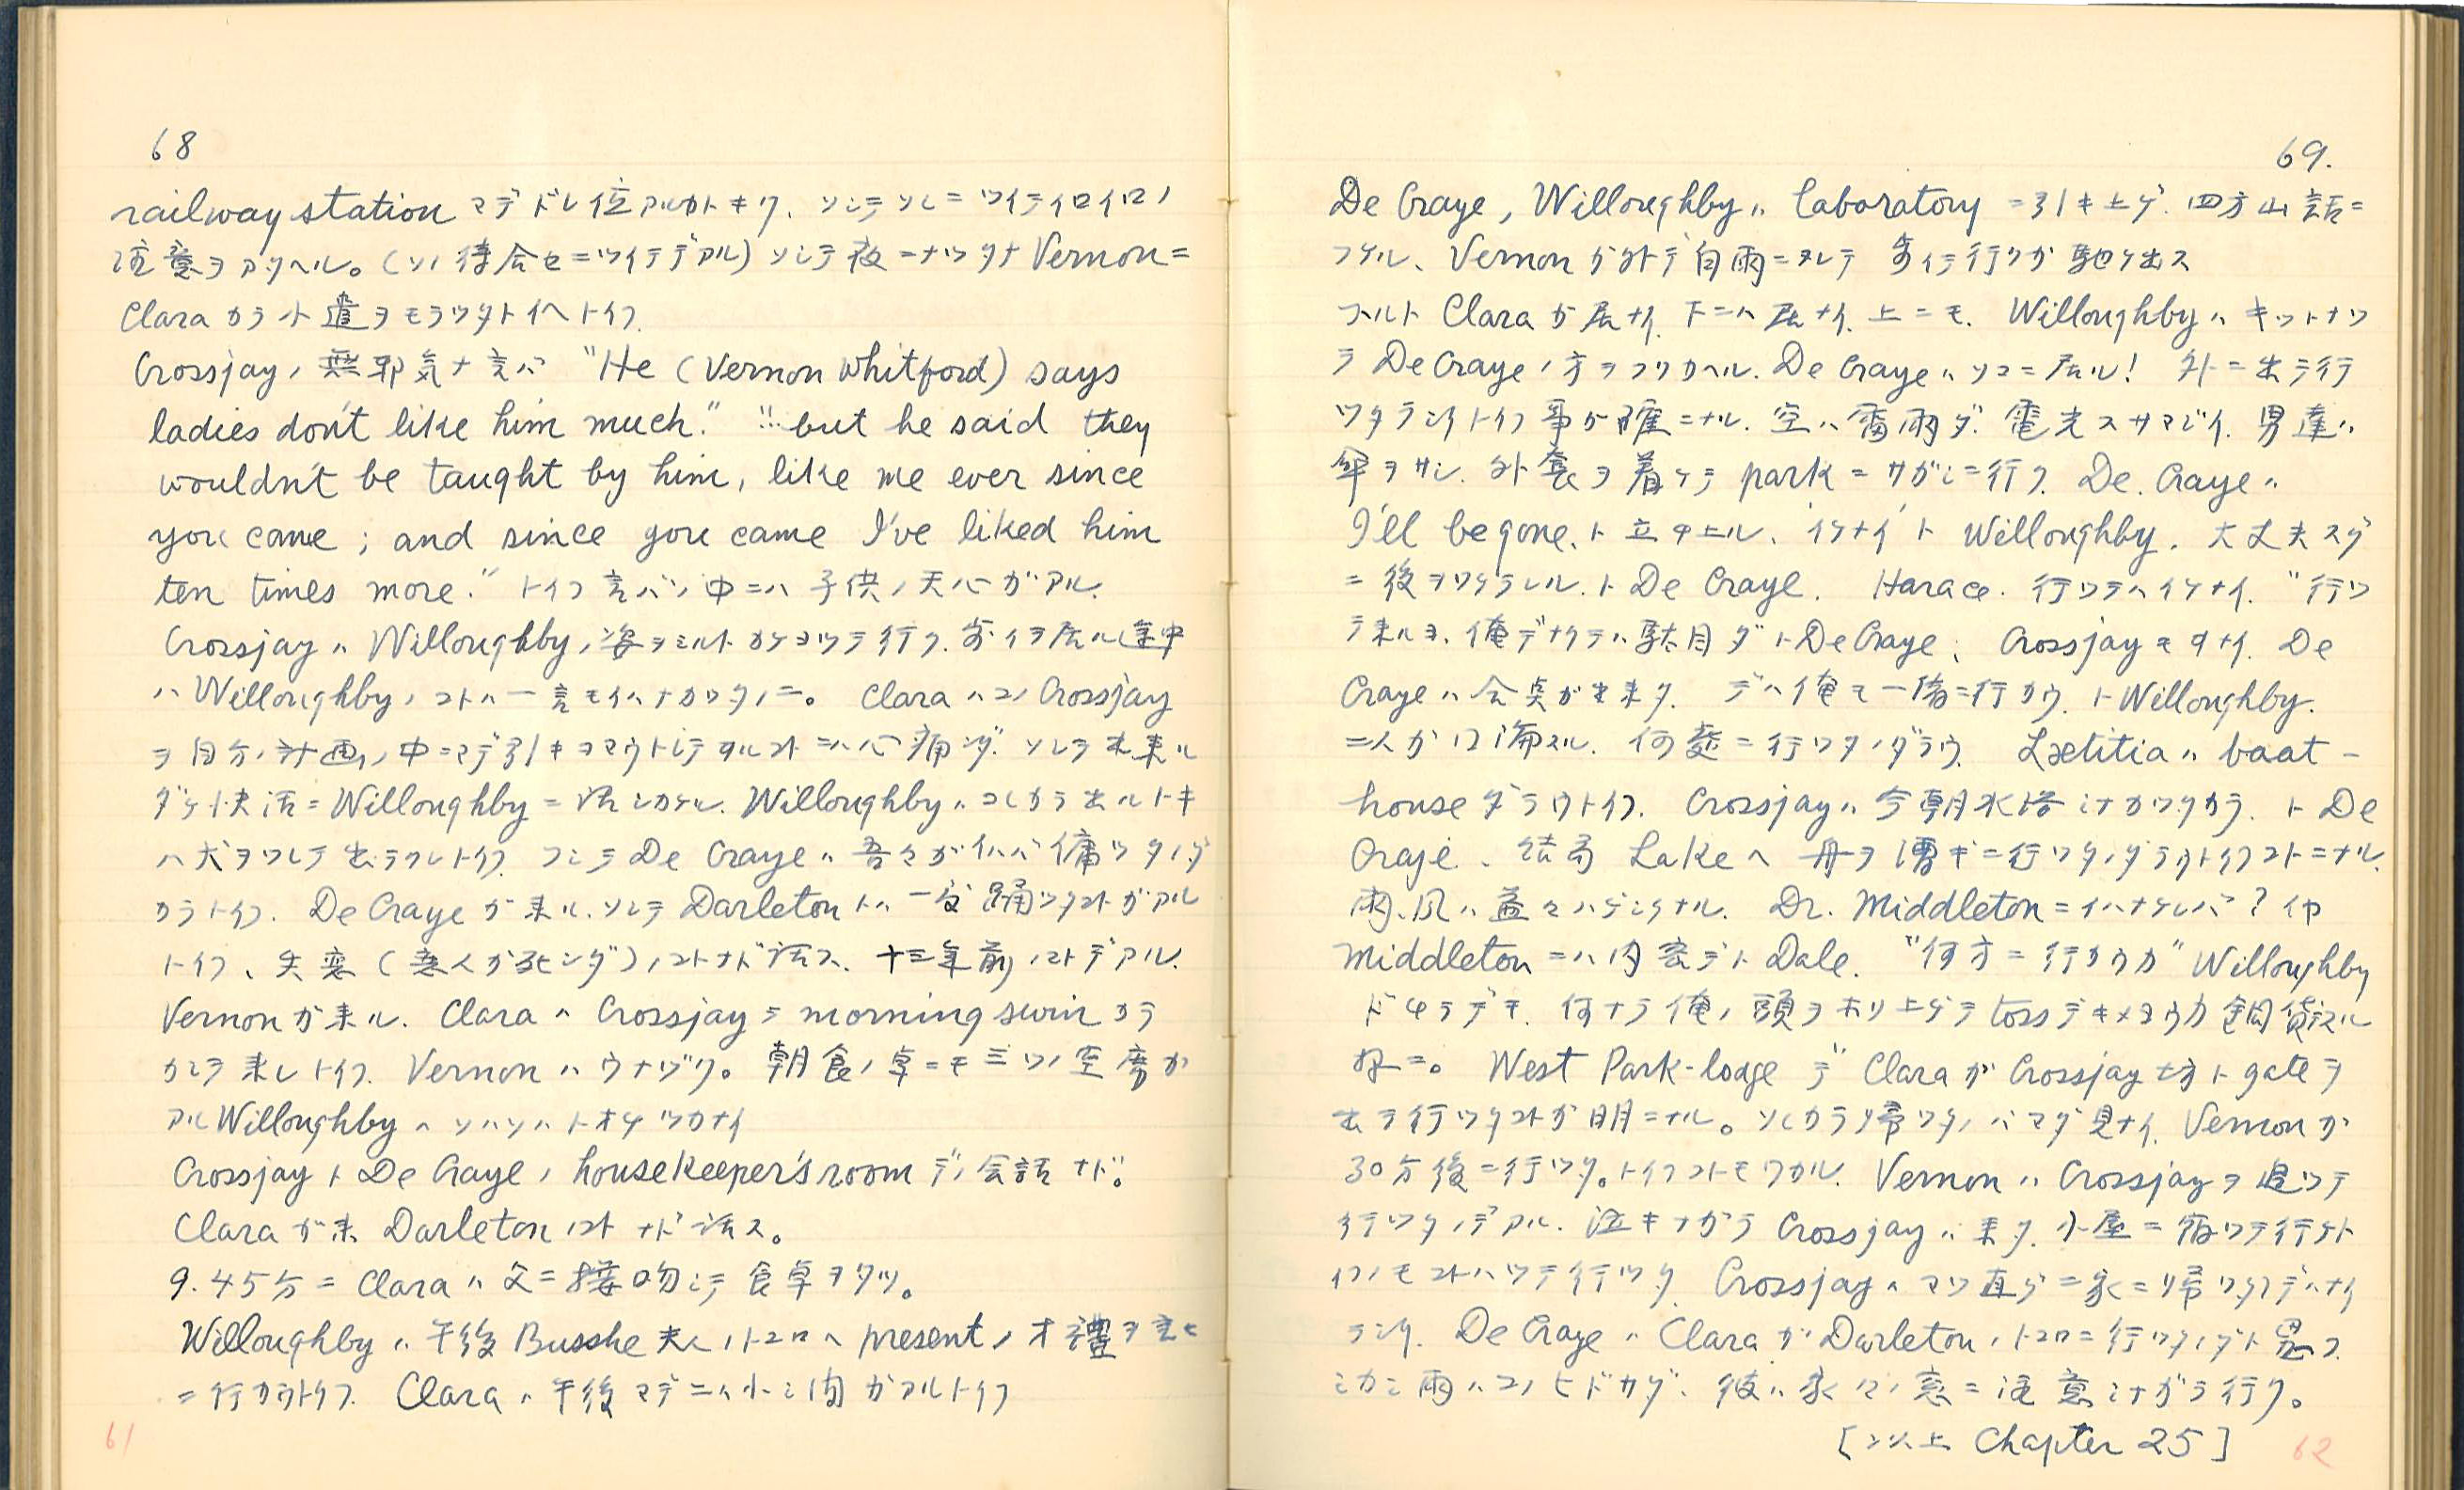 68
railway station マデドレ位アルカトキク、ソシテソレニツイテイロイロノ
注意ヲアタヘル。(ソノ待合セニツイテデアル)ソシテ夜ニナツタナ Vernonニ
Claraカラ小遣ヲモラツタトイヘトイフ.
Crossjayノ無邪気ナ言バ "He (Vernon Whitford) says
ladies don't like him much." "...but he said they
wouldn't be taught by him, like me ever since
you came ; and since you came I've liked him
ten times more." トイフ言バノ中ニハ子供ノ天心ガアル.
Crossjayハ Willoughbyノ姿ヲミルトカケヨツテ行ク. 歩イテ居ル途中
ハ Willoughbyノコトハ一言モイハナカツタノニ。 Claraハコノ Crossjay
ヲ自分ノ計画ノ中ニマデ引キコマウトシテヰルコトニハ心痛ンダ. ソレデ出来ル
ダケ快活ニ Willoughbyニ話シカケル. Willoughbyハコレカラ出ルトキ
ハ犬ヲツレテ出テクレトイフ. ソシテ De Crayeハ吾々ガイハバ傭ツタノダ
カラトイフ. De Crayeガ来ル. ソシテ Darletonトハ一度踊ツタコトガアル
トイフ、失恋(恋人ガ死ンダ)ノコトナド話ス. 十三年前ノコトデアル.
Vernonガ来ル. Claraハ Crossjayヲ morning swimカラ
カヘシテ来レトイフ. Vernonハウナヅク。朝食ノ卓ニモ三ツノ空席ガ
アル Willoughbyハソハソハトオチツカナイ
Crossjayト De Crayeノ housekeeper's roomデノ会話ナド。
Claraガ来 Darletonノコトナド話ス。
9.45分ニ Claraハ父ニ接吻シテ食卓ヲタツ。
Willoughbyハ午後 Busshe夫人ノトコロヘ presentノオ禮ヲ言ヒ
ニ行カウトイフ. Claraハ午後マデニハ少シ間ガアルトイフ
61
69.
De Craye, Willoughbyハ Laboratoryニ引キ上ゲ. 四方山話ニ
フケル、Vernonガ外デ白雨ニヌレテ歩イテ行クガ馳ケ出ス
スルト Claraガ居ナイ. 下ニハ居ナイ. 上ニモ. Willoughbyハキットナツ
テ De Crayeノ方ヲフリカヘル. De Crayeハソコニ居ル! 外ニ出テ行
ツタラシイトイフ事ガ確ニナル. 空ハ雷雨ダ. 電光スサマジイ. 男達ハ
傘ヲサシ. 外套ヲ着ケテ parkニサガシニ行ク. De Crayeハ
I'll be gone. ト立チ上ル、イケナイト Willoughby. 大丈夫スグ
ニ後ヲツケラレル. ト De Craye. Horace. 行ツテハイケナイ. "行ツ
テ来ルヨ. 俺デナクテハ駄目ダト De Craye; Crossjayモヰナイ. De
Crayeハ合点ガ出来タ. デハ俺モ一緒ニ行カウ. ト Willoughby.
二人ガ口論スル. 何処ニ行ツタノダラウ. Lætitiaハ boat-
houseダラウトイフ. Crossjayハ今朝水浴シナカツタカラ. ト De
Craye、結局 Lakeヘ舟ヲ漕ギニ行ツタノダラウトイフコトニナル.
雨、風ハ益々ハゲシクナル. Dr. Middletonニイハナケレバ? イヤ
Middletonニハ内密デト Dale. "何方ニ行カウカ" Willoughby
ドチラデモ. 何ナラ俺ノ頭ヲホリ上ゲテ tossデキメヨウカ銅貨スル
様ニ。 West Park-lodgeデ Claraガ Crossjay坊ト gateヲ
出テ行ツタコトガ明ニナル。ソレカラ帰ツタノハマダ見ナイ. Vernonガ
30分後ニ行ツタ。トイフコトモワカル. Vernonハ Crossjayヲ追ツテ
行ツタノデアル. 泣キナガラ Crossjayハ来タ. 小屋ニ宿ツテ行ケト
イフノモコトハツテ行ツタ. Crossjayハマツ直グニ家ニ帰ツタノデハナイ
ラシイ. De Crayeハ Claraガ Darletonノトコロニ行ツタノダト思フ.
シカシ雨ハコノヒドサダ. 彼ハ家々ノ窓ニ注意シナガラ行ク。
[以上 Chapter 25]
62